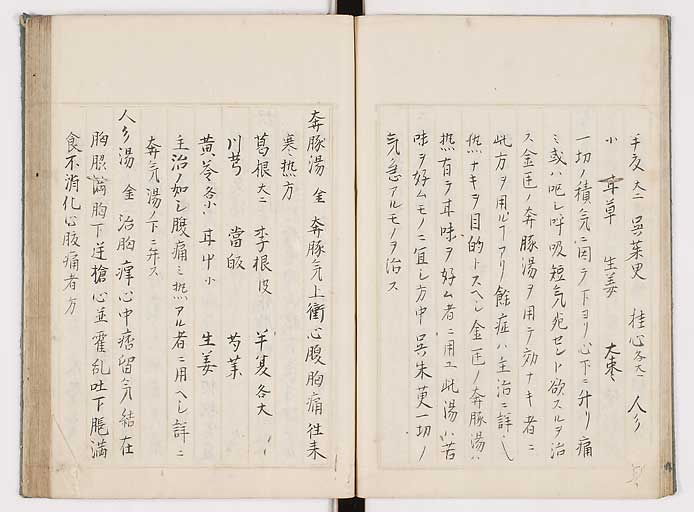 半夏大 呉茱萸 桂心各大 人参
小 甘草 生姜 大棗
一切ノ積気ニ因テ下ヨリ心下ニ升リ痛
ミ或ハ呕シ呼吸短気死セント欲スルヲ治
ス金匱ノ奔豚湯ヲ用テ効ナキ者ニ
此方ヲ用ルヿアリ餘症ハ主治ニ詳ヘシ
熱ナキヲ目的トスヘシ金匱ノ奔豚湯ハ
熱有テ甘味ヲ好ム者ニ用ユ此湯ハ苦
味ヲ好ムモノニ宜シ方中呉朱萸一切ノ
気急アルモノヲ治ス
奔豚湯 金 奔豚気上衝心腹胸痛往来
寒熱方
葛根大 李根皮 半夏各大
川芎 當皈 芍薬
黄芩各小 甘中小 生姜
主治ノ如シ腹痛ミ熱アル者ニ用ヘシ詳ニ
奔気湯ノ下ニ弁ス
人参湯 金 治胸痺心中痞留気結在
胸胸満胸下逆搶心並霍乱吐下脹満
食不消化心腹痛者方